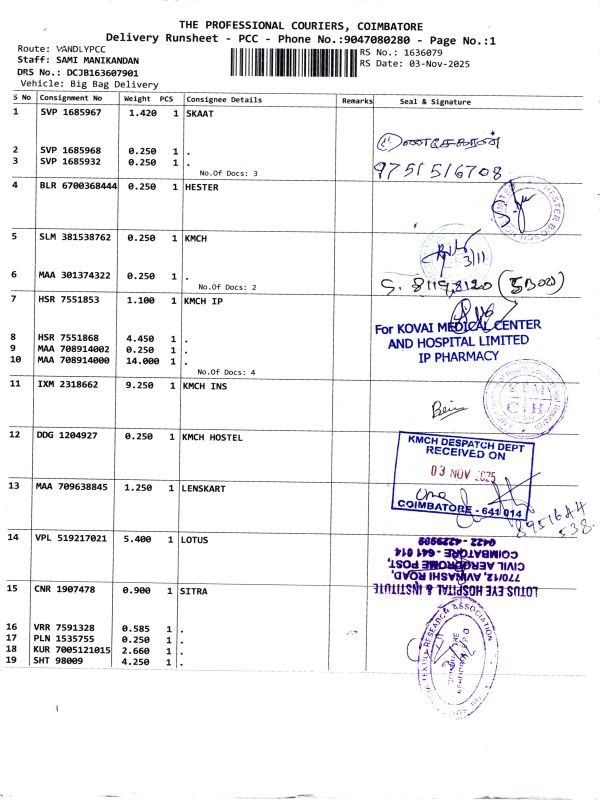 THE PROFESSIONAL COURIERS, COIMBATORE
Delivery Runsheet - PCC - Phone No.:9047080280 - Page No.:1
Route: VANDLYPCC
Staff: SAMI MANIKANDAN
DRS No.: DCJB163607901
Vehicle: Big Bag Delivery
RS No.: 1636079
RS Date: 03-Nov-2025
S No Consignment No Weight PCS Consignee Details Remarks Seal & Signature
1 SVP 1685967 1.420 1 SKAAT
குணசேகரன்
2 SVP 1685968 0.250 1 .
3 SVP 1685932 0.250 1 .
9751516708
No.Of Docs: 3
4 BLR 6700368444 0.250 1 HESTER
5 SLM 381538762 0.250 1 KMCH
3/11
6 MAA 301374322 0.250 1 .
No.Of Docs: 2
7 HSR 7551853 1.100 1 KMCH IP
For KOVAI MEDICAL CENTER
AND HOSPITAL LIMITED
IP PHARMACY
8 HSR 7551868 4.450 1 .
9 MAA 708914002 0.250 1 .
10 MAA 708914000 14.000 1 .
No.Of Docs: 4
11 IXM 2318662 9.250 1 KMCH INS
12 DDG 1204927 0.250 1 KMCH HOSTEL
KMCH DESPATCH DEPT
RECEIVED ON
03 NOV 2025
COIMBATORE - 641 014
13 MAA 709638845 1.250 1 LENSKART
8951644
538
14 VPL 519217021 5.400 1 LOTUS
LOTUS EYE HOSPITAL & INSTITUTE
770/12, AVINASHI ROAD,
CIVIL AERODROME POST,
COIMBATORE - 641 014
0422 - 4229999
15 CNR 1907478 0.900 1 SITRA
16 VRR 7591328 0.585 1 .
17 PLN 1535755 0.250 1 .
18 KUR 7005121015 2.660 1 .
19 SHT 98009 4.250 1 .
TEXTILE RESEARCH ASSOCIATION